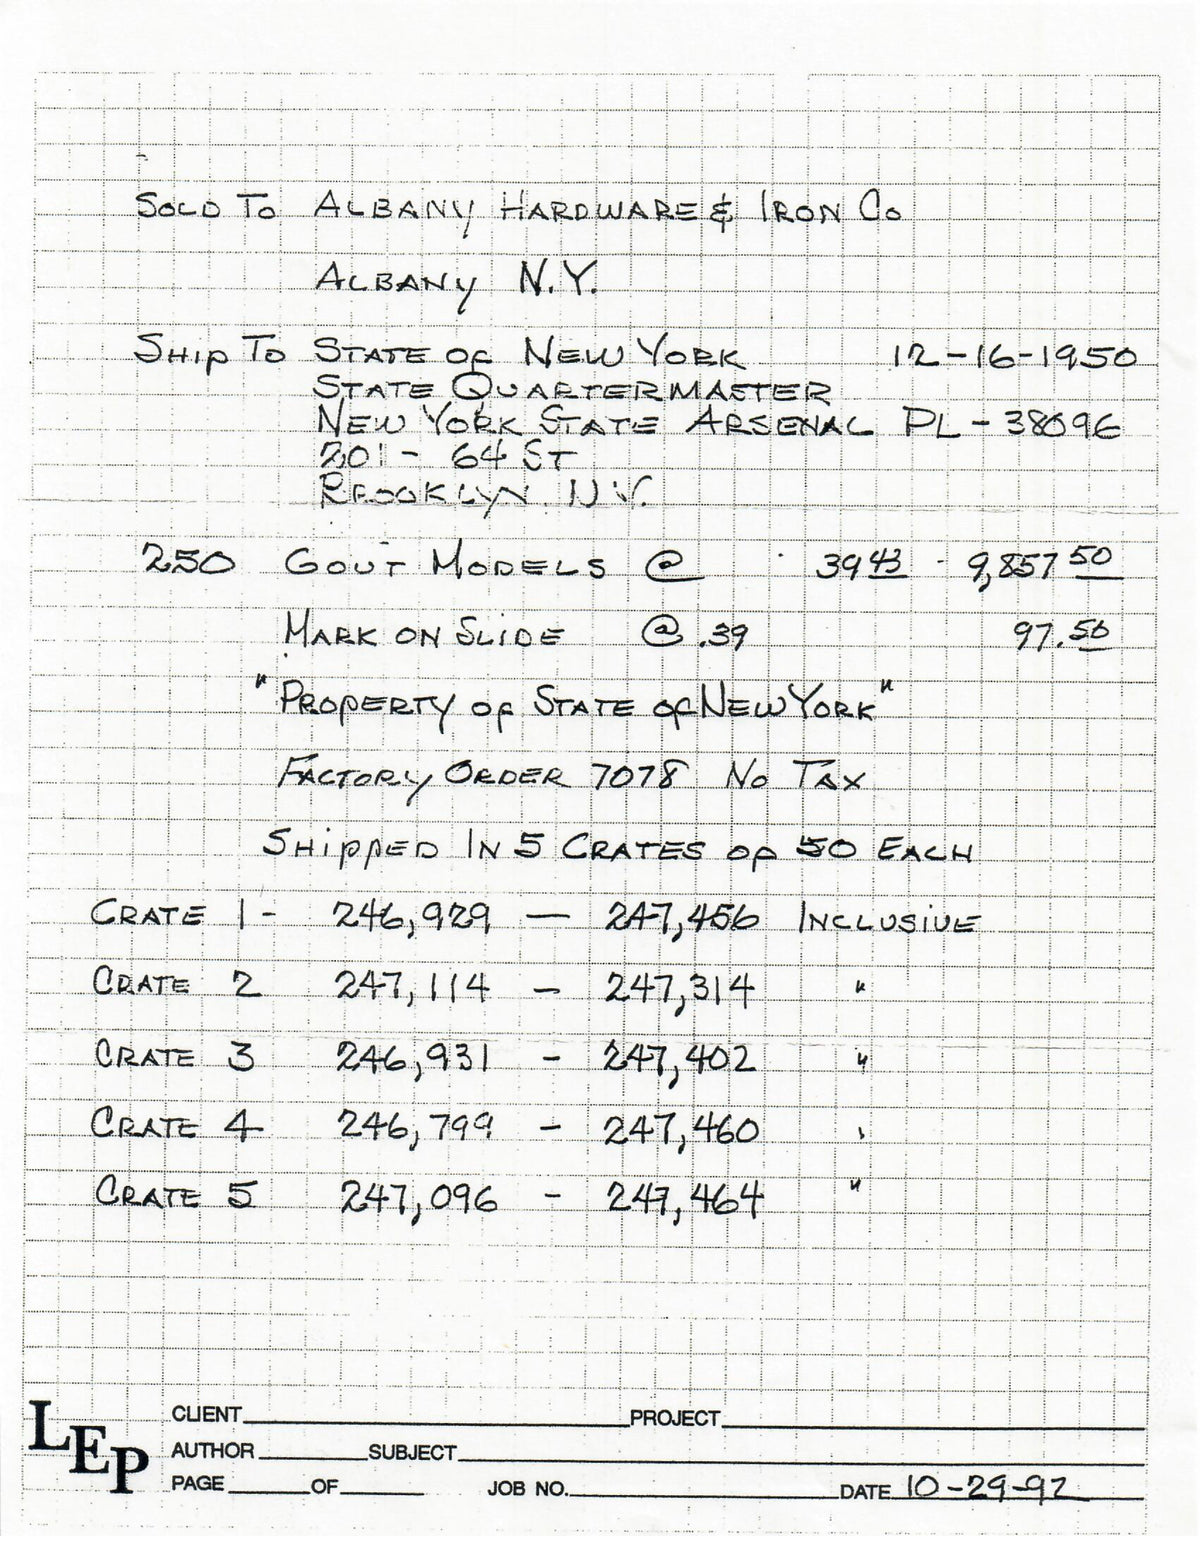 SOLD TO ALBANY HARDWARE & IRON CO
ALBANY N.Y.
SHIP TO STATE OF NEW YORK 12-16-1950
STATE QUARTERMASTER
NEW YORK STATE ARSENAL PL-38096
201 - 64 ST
BROOKLYN N.Y.
250 GOVT MODELS @ 39 43 9,857 50
MARK ON SLIDE @ .39 97.50
"PROPERTY OF STATE OF NEW YORK"
FACTORY ORDER 7078 NO TAX
SHIPPED IN 5 CRATES OF 50 EACH
CRATE 1 - 246,929 — 247,456 INCLUSIVE
CRATE 2 247,114 - 247,314 "
CRATE 3 246,931 - 247,402 "
CRATE 4 246,799 - 247,460 "
CRATE 5 247,096 - 247,464 "
LEP
CLIENT PROJECT
AUTHOR SUBJECT
PAGE OF JOB NO. DATE 10-29-92